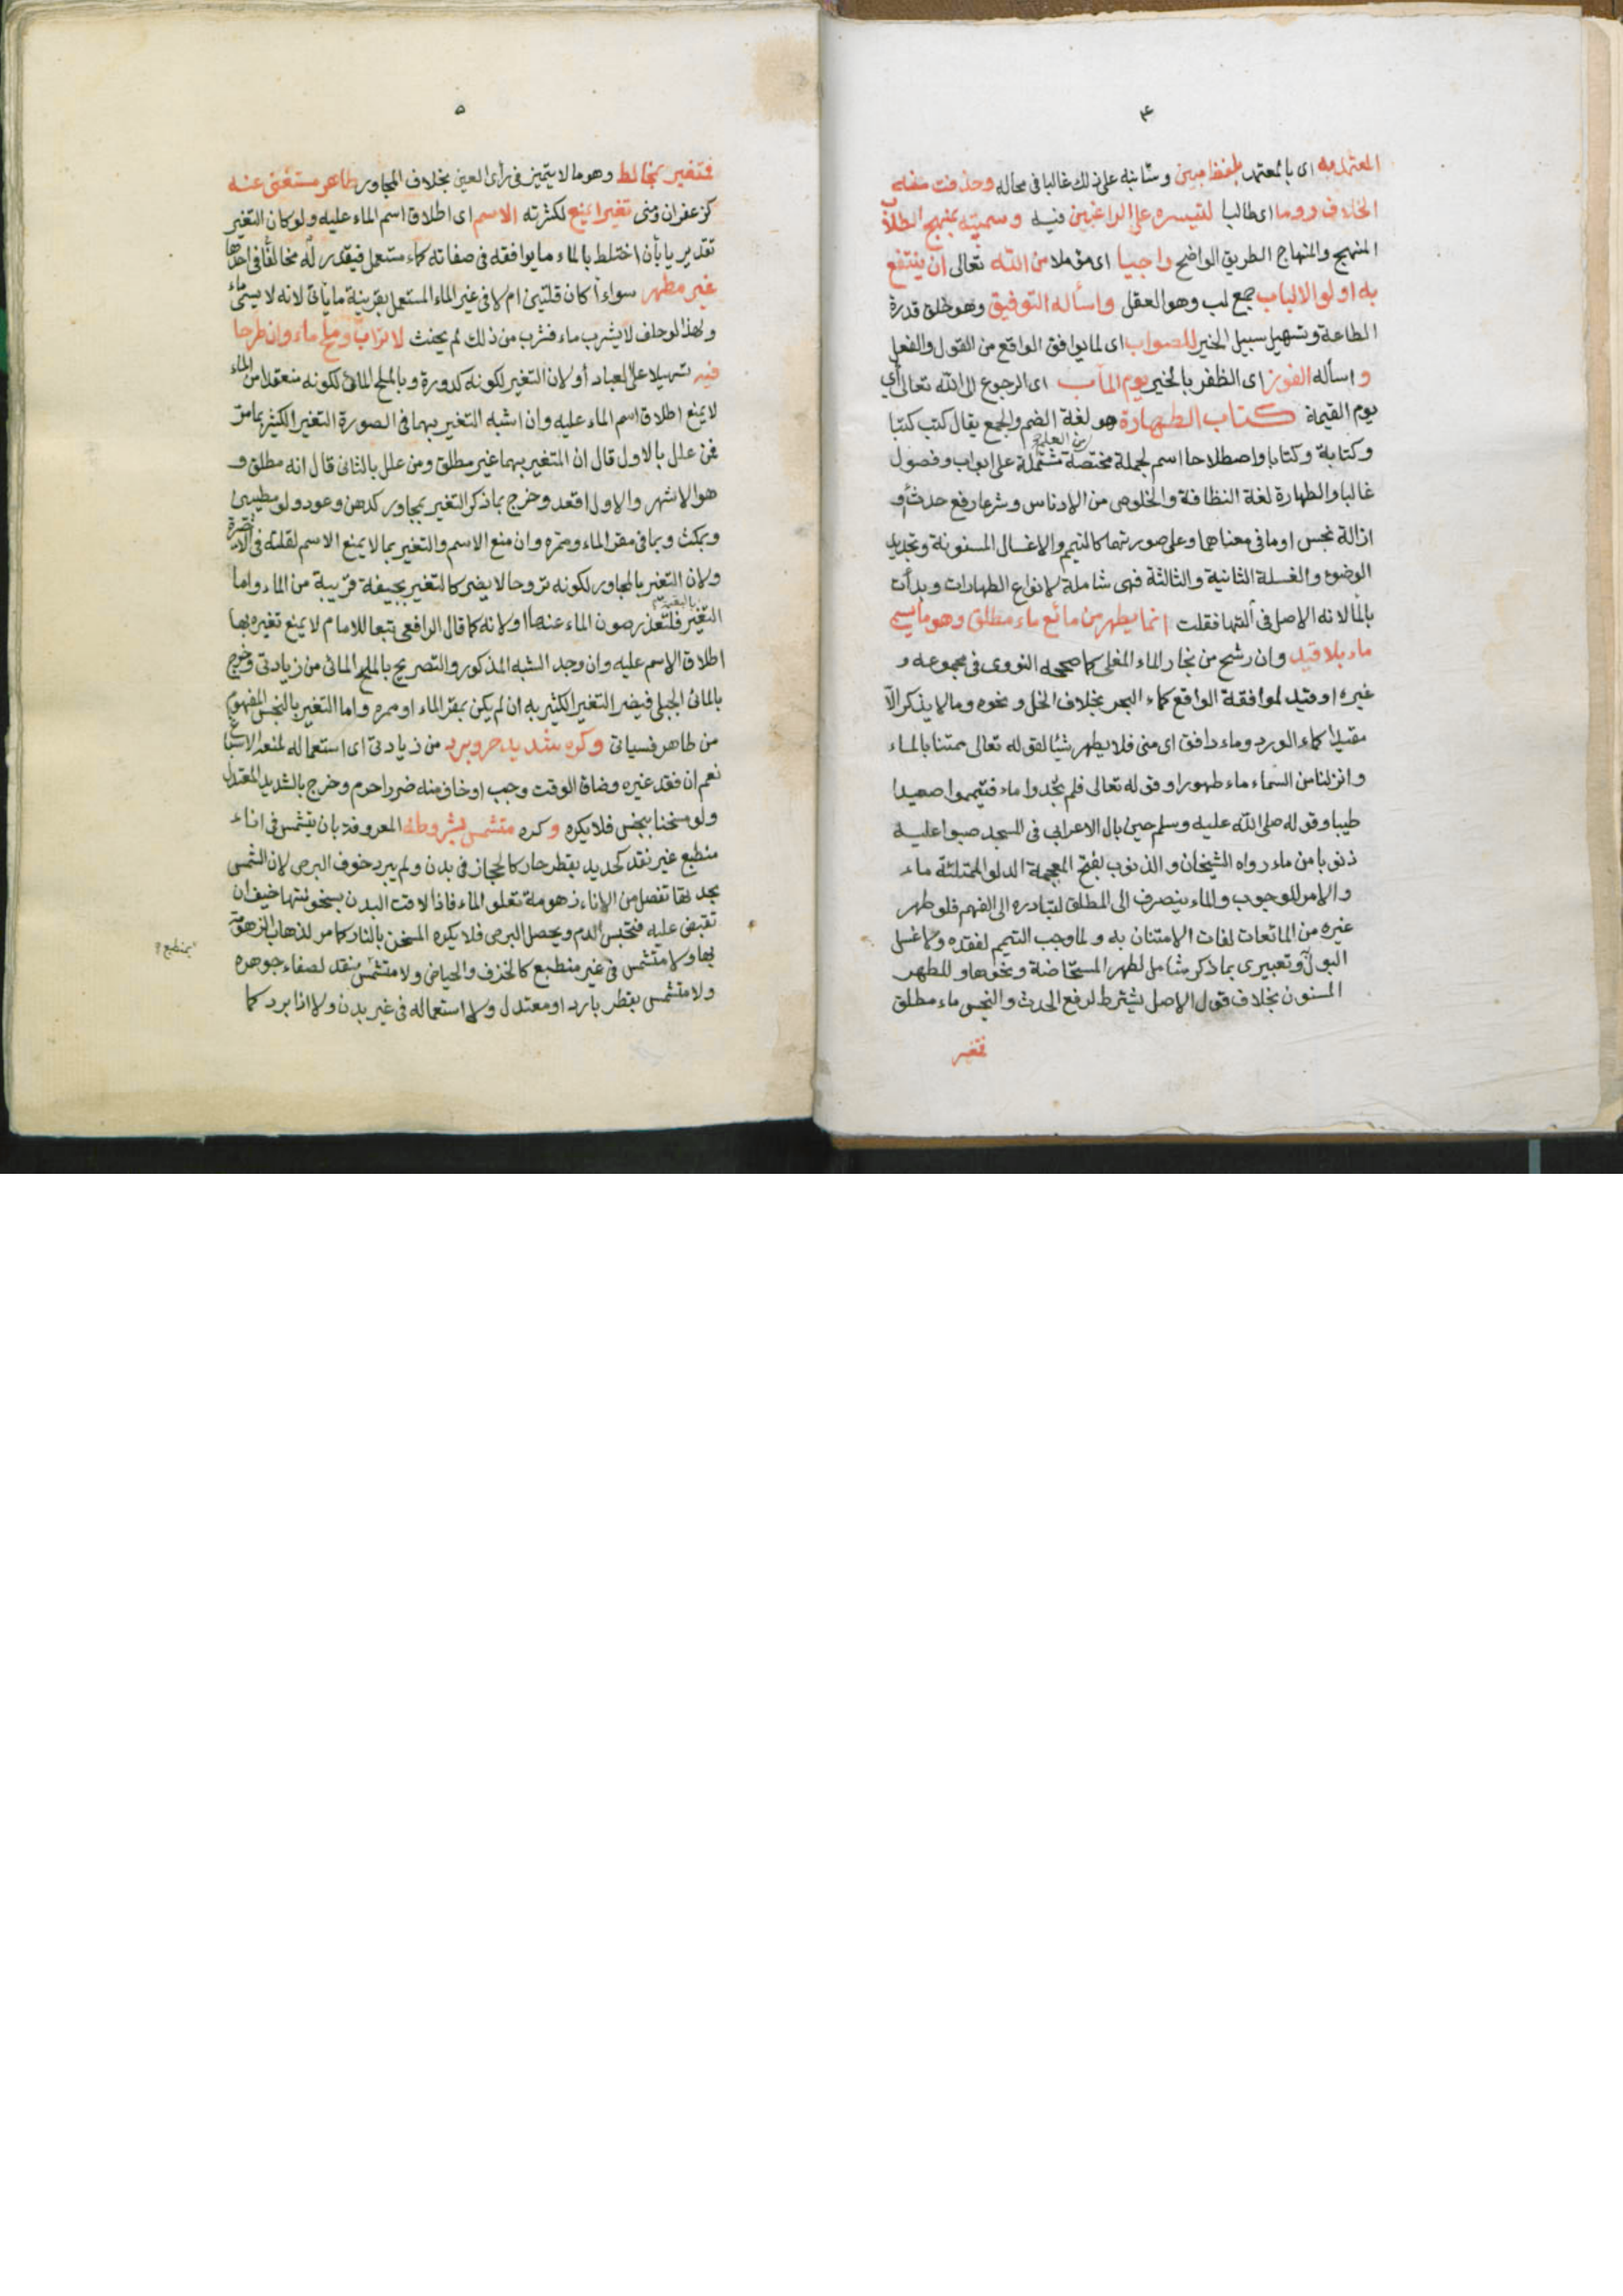 ٤
المعتمد به اى بالمعتمد بلفظ مبين وستانبه على ذلك غالبا فى محاله وحذفت منه
الخلاف روما اى طالبا لتيسره على الراغبين فيه وسميته بمنهج الطلاب
المنهج والمنهاج الطريق الواضح راجيا اى مؤملا من الله تعالى أن ينتفع
به اولو الالباب جمع لب وهو العقل واسأله التوفيق وهو خلق قدرة
الطاعة وتسهيل سبيل الخير للصواب اى لما يوافق الواقع من القول والفعل
و اسأله الفوز اى الظفر بالخير يوم المآب اى الرجوع الى الله تعالى أي
يوم القيمة كتاب الطهارة هو لغة الضم والجمع يقال كتب كتبا
وكتابة وكتابا واصطلاحا اسم لجملة مختصة من العلم مشتملة على ابواب وفصول
غالبا والطهارة لغة النظافة والخلوص من الادناس وشرعا رفع حدث أو
ازالة نجس اوما فى معناهما وعلى صورتهما كالتيمم والاغسال المسنونة وتجديد
الوضوء والغسلة الثانية والثالثة فهى شاملة لانواع الطهارات وبدأت
بالما لانه الاصل فى آلتها فقلت انما يطهر من مائع ماء مطلق وهو ما يسمى
ماء بلا قيد وان رشح من بخار الماء المغلى كما صححه النووى فى مجموعه و
غيره اوقيد لموافقة الواقع كماء البحر بخلاف الخل ونحوه وما لا يذكر الّا
مقيدا كماء الورد وماء دافق اى منى فلا يطهر شيئا لقوله تعالى ممتنا بالماء
وانزلنا من السماء ماء طهورا وقوله تعالى فلم تجدوا ماء فتيمموا صعيدا
طيبا وقوله صلى الله عليه وسلم حين بال الاعرابى فى المسجد صبوا عليه
ذنوبا من ماء رواه الشيخان والذنوب بفتح المعجمة الدلو الممتلئة ماء
والامر للوجوب والماء ينصرف الى المطلق لتبادره الى الفهم فلو طهر
غيره من المائعات لفات الامتنان به ولما وجب التيمم لفقده ولا غسل
البول وتعبيرى بما ذكر شامل لطهر المستحاضة ونحوها وللطهر
المسنون بخلاف قول الاصل يشترط لرفع الحدث والنجس ماء مطلق
فتغير
٥
فتغير بمخالط وهو ما لا يتميز فى رأى العين بخلاف المجاور طاهر مستغنى عنه
كزعفران ومنى تغيرا يمنع لكثرته الاسم اى اطلاق اسم الماء عليه ولو كان التغير
تقديريا بأن اختلط بالماء ما يوافقه فى صفاته كماء مستعمل فيقدر له مخالفا فى احدها
غير مطهر سواء أكان قلتين ام لا فى غير الماء المستعمل بقرينة ما يأتى لانه لا يسمى ماء
ولهذا لو حلف لا يشرب ماء فشرب من ذلك لم يحنث لا تراب وملح ماء وان طرحا
فيه تسهيلا على العباد أو لان التغير لكونه كدورة وبالملح المائى لكونه منعقدا من الماء
لا يمنع اطلاق اسم الماء عليه وان اشبه التغير بهما فى الصورة التغير الكثير بما مرّ
فمن علل بالاول قال ان المتغير بهما غير مطلق ومن علل بالثانى قال انه مطلق و
هو الاشهر والاول اقعد وخرج بما ذكر التغير بمجاور كدهن وعود ولو مطيبين
وبمكث وبما فى مقر الماء وممره وان منع الاسم والتغير بما لا يمنع الاسم لقلته فى الاخيرة
ولان التغير بالمجاور لكونه تروحا لا يضر كالتغير بجيفة قريبة من الماء واما
التغير بالبقية فلتعذر صون الماء عنها او لانه كما قال الرافعى تبعا للامام لا يمنع تغيره بها
اطلاق الاسم عليه وان وجد الشبه المذكور والتصريح بالملح المائى من زيادتى وخرج
بالمائى الجبلى فيضر التغير الكثير به ان لم يكن بمقر الماء او ممره واما التغير بالنجس المفهوم
من طاهر فسيأتى وكره شديد حر وبرد من زيادتى اى استعماله لمنعه الاسباغ
نعم ان فقد غيره وضاق الوقت وجب او خاف منه ضررا حرم وخرج بالشديد المعتدل
ولو مسخنا بنجس فلا يكره وكره متشمس بشروطه المعروفة بان يتشمس فى اناء
منطبع غير نقد كحديد بقطر حار كالحجاز فى بدن ولم يبرد خوف البرص لان الشمس
بحدتها تفصل من الاناء زهومة تعلو الماء فاذا لاقت البدن بسخونتها خيف ان
تقبض عليه فتحبس الدم ويحصل البرص فلا يكره المسخن بالنار كما مر لذهاب الزهومة
بها ولا متشمس فى غير منطبع كالخزف والحياض ولا متشمس بمنقد لصفاء جوهره
ولا متشمس بقطر بارد او معتدل ولا استعماله فى غير بدن ولا اذا برد كما
بمنطبع؟